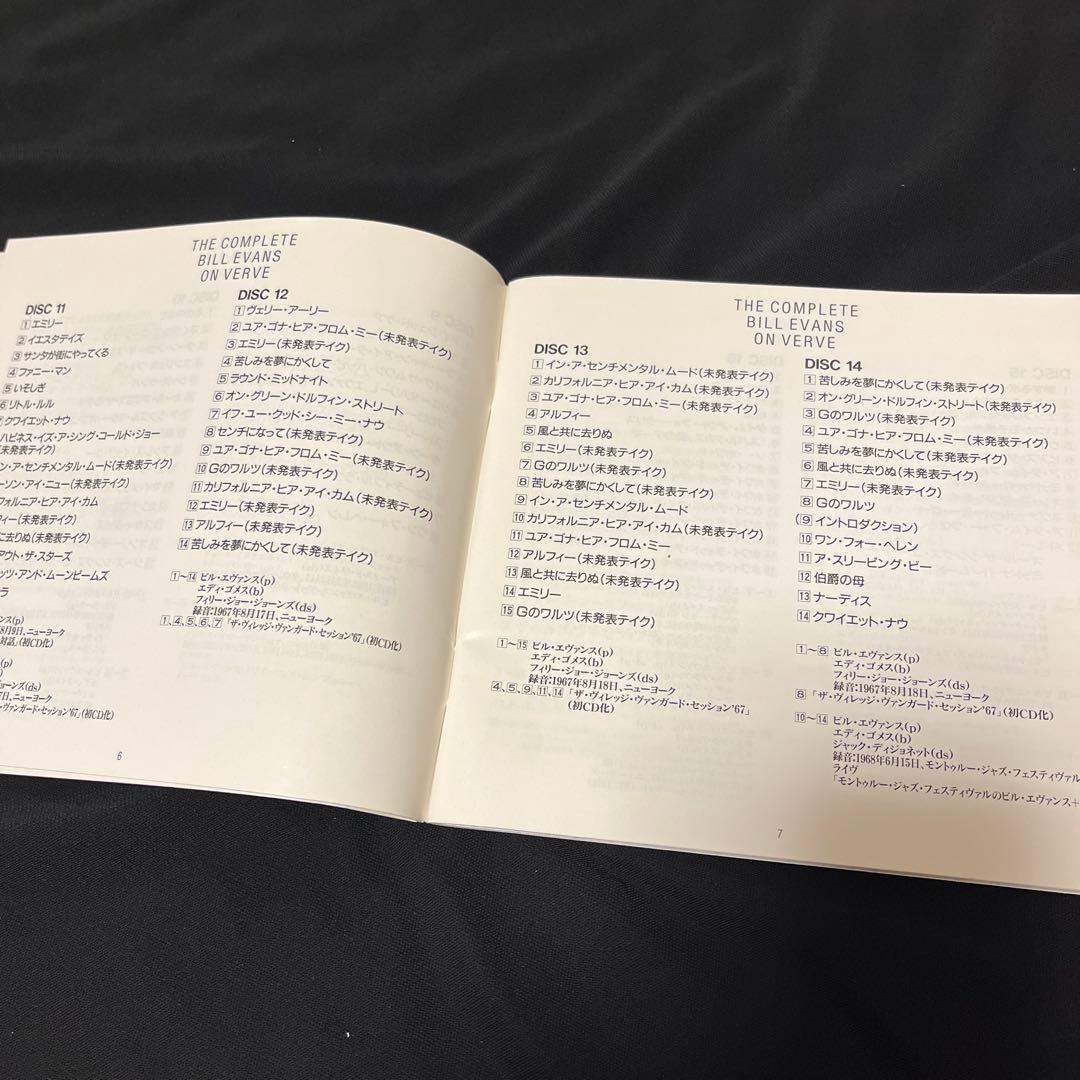 THE COMPLETE
BILL EVANS
ON VERVE
DISC 11
1 エミリー
2 イエスタデイズ
3 サンタが街にやってくる
4 ファニー・マン
5 いそしぎ
6 リトル・ルル
クワイエット・ナウ
ハピネス・イズ・ア・シング・コールド・ジョー
(未発表テイク)
ン・ア・センチメンタル・ムード(未発表テイク)
ーソン・アイ・ニュー(未発表テイク)
フォルニア・ヒア・アイ・カム
フィー(未発表テイク)
に去りぬ(未発表テイク)
アウト・ザ・スターズ
ッツ・アンド・ムーンビームズ
ラ
ンス(p)
8月9日、ニューヨーク
対話」(初CD化)
(p)
)
ョーンズ(ds)
7日、ニューヨーク
・ヴァンガード・セッション'67」(初CD化)
DISC 12
1 ヴェリー・アーリー
2 ユア・ゴナ・ヒア・フロム・ミー(未発表テイク)
3 エミリー(未発表テイク)
4 苦しみを夢にかくして
5 ラウンド・ミッドナイト
6 オン・グリーン・ドルフィン・ストリート
7 イフ・ユー・クッド・シー・ミー・ナウ
8 センチになって(未発表テイク)
9 ユア・ゴナ・ヒア・フロム・ミー(未発表テイク)
10 Gのワルツ(未発表テイク)
11 カリフォルニア・ヒア・アイ・カム(未発表テイク)
12 エミリー(未発表テイク)
13 アルフィー(未発表テイク)
14 苦しみを夢にかくして(未発表テイク)
1〜14 ビル・エヴァンス(p)
エディ・ゴメス(b)
フィリー・ジョー・ジョーンズ(ds)
録音:1967年8月17日、ニューヨーク
1、4、5、6、7「ザ・ヴィレッジ・ヴァンガード・セッション'67」(初CD化)
6
THE COMPLETE
BILL EVANS
ON VERVE
DISC 13
1 イン・ア・センチメンタル・ムード(未発表テイク)
2 カリフォルニア・ヒア・アイ・カム(未発表テイク)
3 ユア・ゴナ・ヒア・フロム・ミー(未発表テイク)
4 アルフィー
5 風と共に去りぬ
6 エミリー(未発表テイク)
7 Gのワルツ(未発表テイク)
8 苦しみを夢にかくして(未発表テイク)
9 イン・ア・センチメンタル・ムード
10 カリフォルニア・ヒア・アイ・カム(未発表テイク)
11 ユア・ゴナ・ヒア・フロム・ミー
12 アルフィー(未発表テイク)
13 風と共に去りぬ(未発表テイク)
14 エミリー
15 Gのワルツ(未発表テイク)
1〜15 ビル・エヴァンス(p)
エディ・ゴメス(b)
フィリー・ジョー・ジョーンズ(ds)
録音:1967年8月18日、ニューヨーク
4、5、9、11、14「ザ・ヴィレッジ・ヴァンガード・セッション'67」
(初CD化)
DISC 14
1 苦しみを夢にかくして(未発表テイク)
2 オン・グリーン・ドルフィン・ストリート(未発表テイク)
3 Gのワルツ(未発表テイク)
4 ユア・ゴナ・ヒア・フロム・ミー(未発表テイク)
5 苦しみを夢にかくして(未発表テイク)
6 風と共に去りぬ(未発表テイク)
7 エミリー(未発表テイク)
8 Gのワルツ
(9 イントロダクション)
10 ワン・フォー・ヘレン
11 ア・スリーピング・ビー
12 伯爵の母
13 ナーディス
14 クワイエット・ナウ
1〜8 ビル・エヴァンス(p)
エディ・ゴメス(b)
フィリー・ジョー・ジョーンズ(ds)
録音:1967年8月18日、ニューヨーク
8「ザ・ヴィレッジ・ヴァンガード・セッション'67」(初CD化)
10〜14 ビル・エヴァンス(p)
エディ・ゴメス(b)
ジャック・ディジョネット(ds)
録音:1968年6月15日、モントゥルー・ジャズ・フェスティヴァル
ライヴ
「モントゥルー・ジャズ・フェスティヴァルのビル・エヴァンス+
7